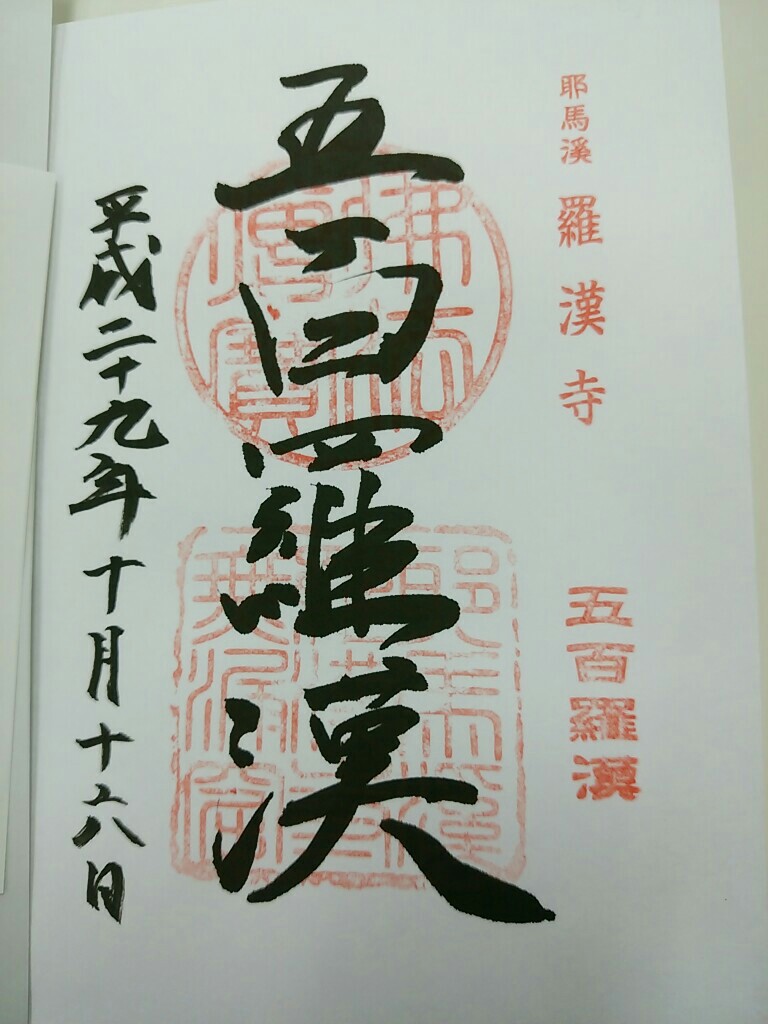 耶馬溪 羅漢寺
五百羅漢
五百羅漢
佛法僧寶
平成二十九年十月十六日